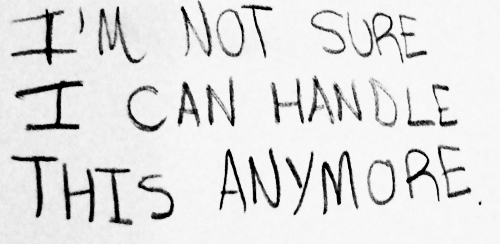 I'M NOT SURE
I CAN HANDLE
THIS ANYMORE.